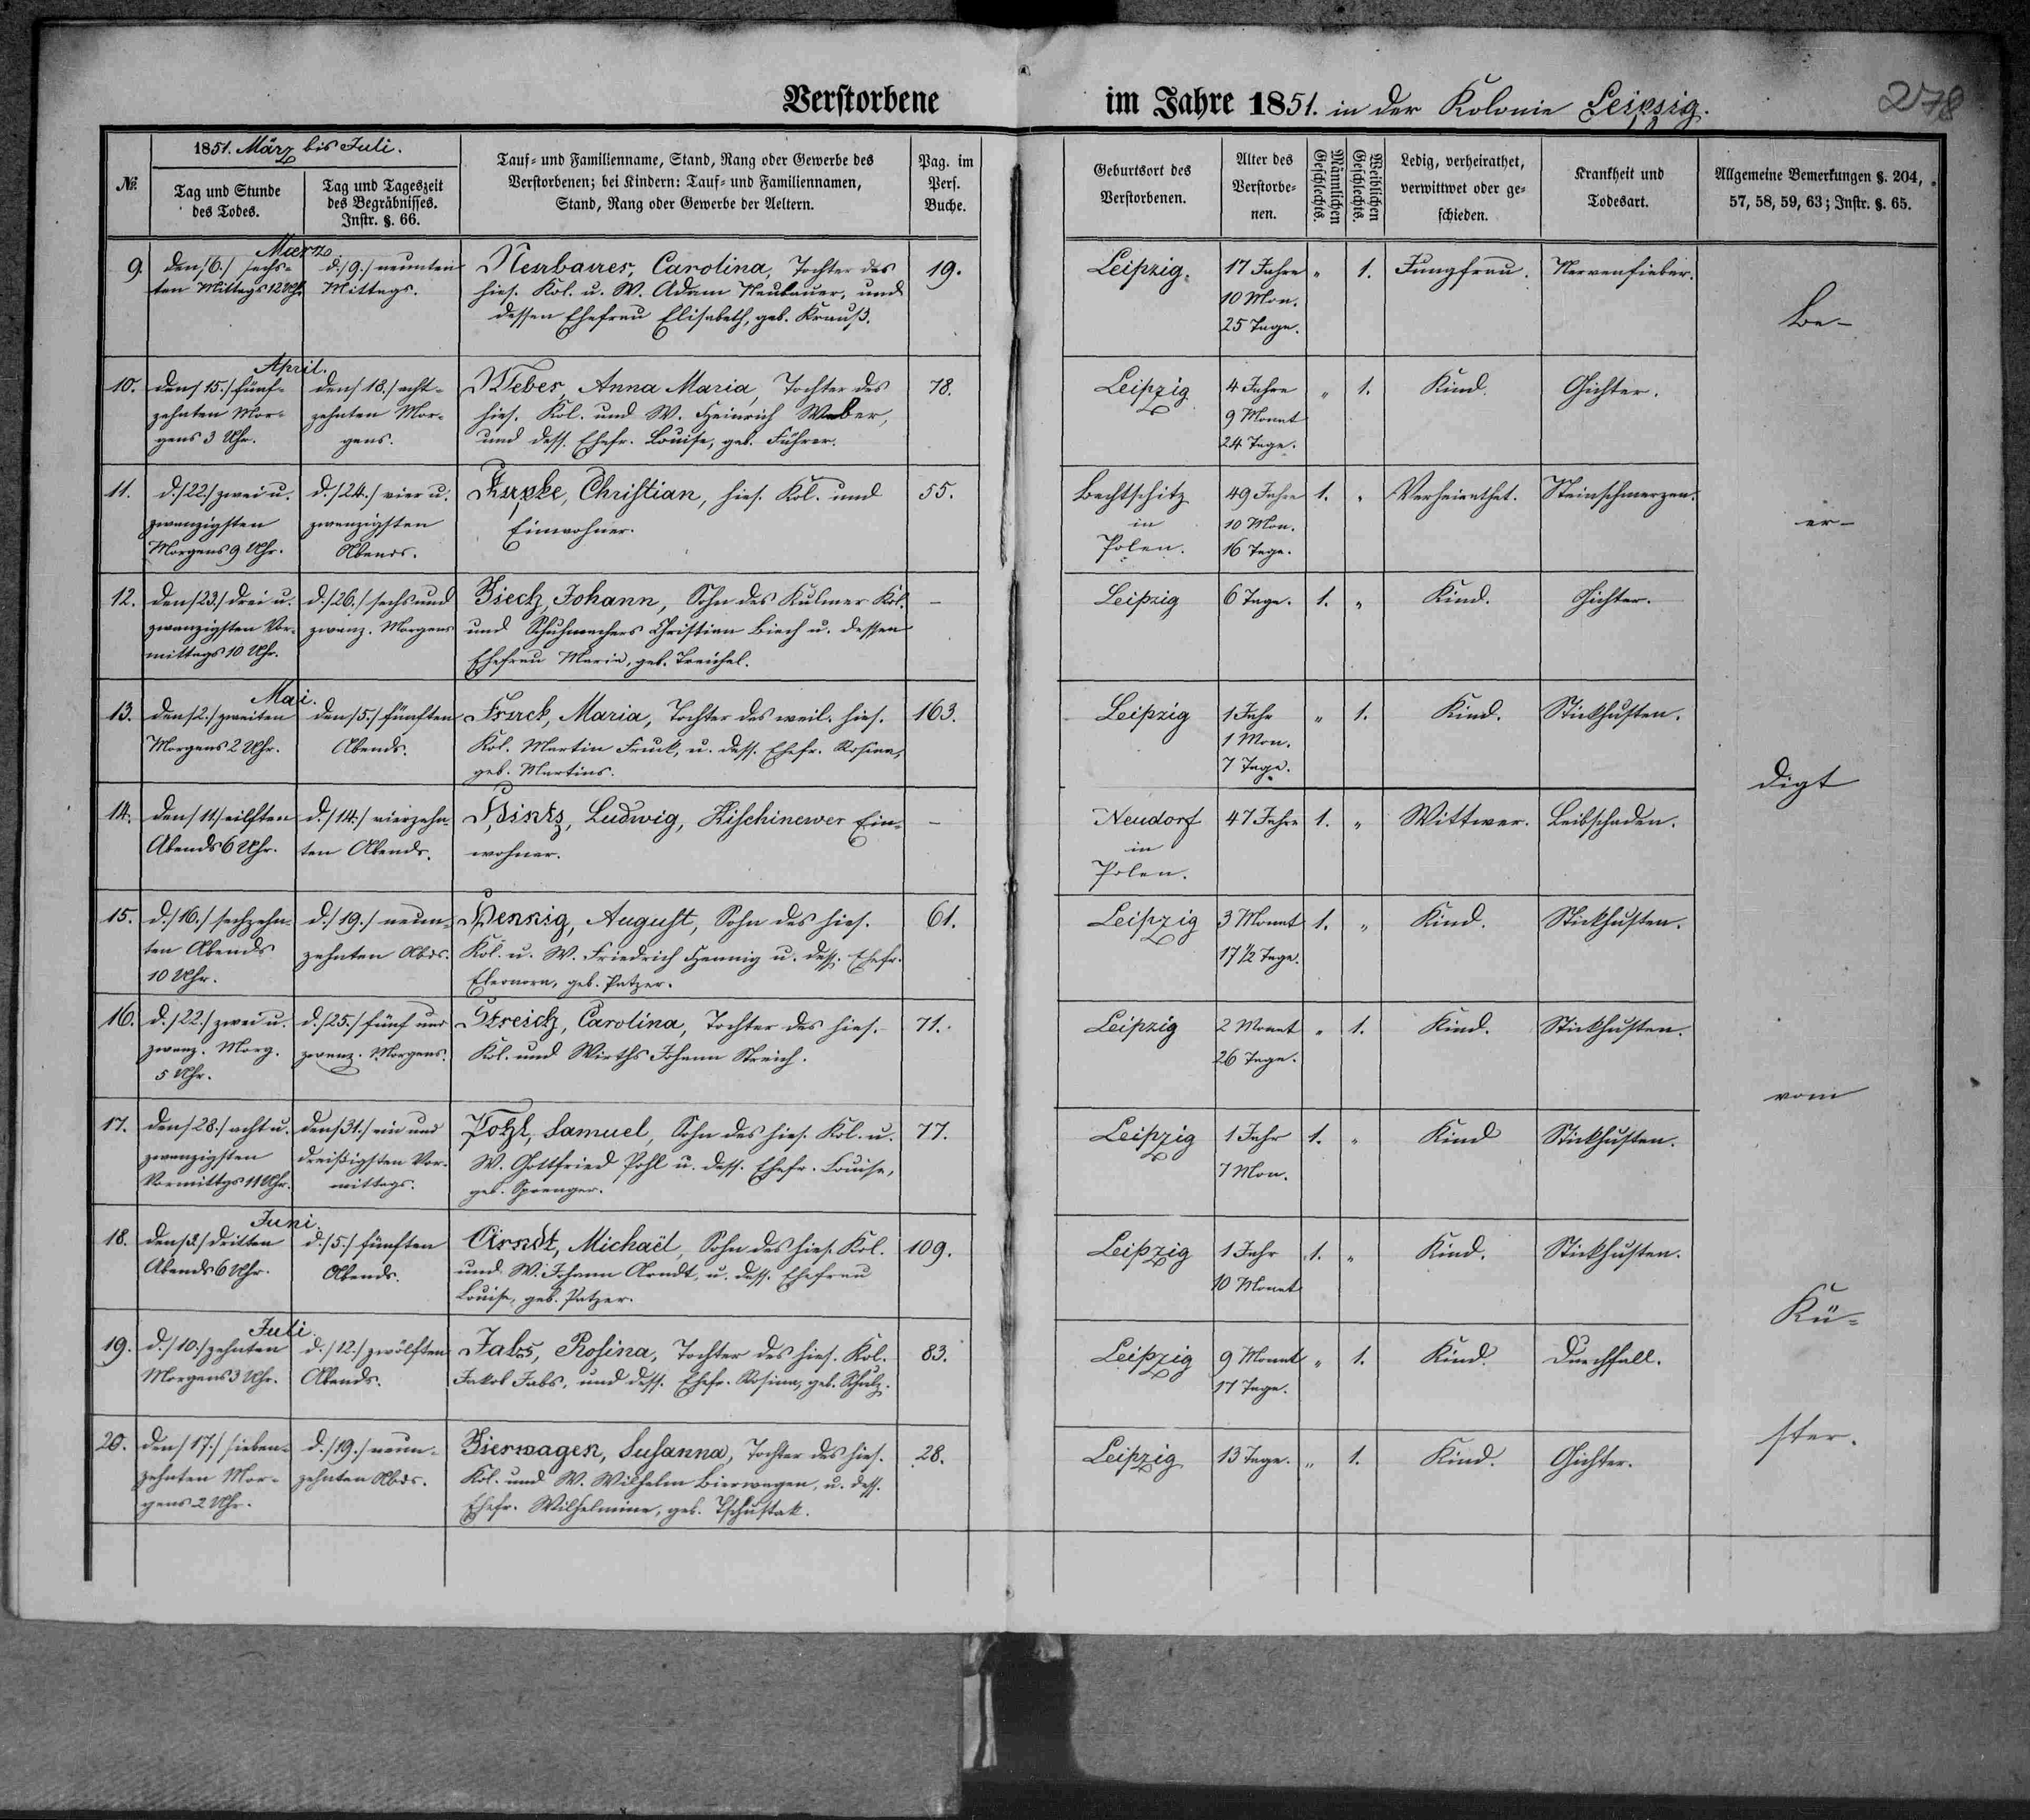 Verstorbene im Jahre 1851. in der Kolonie Leipzig.
278
1851. März bis Juli.
№
Tag und Stunde
des Todes.
Tag und Tageszeit
des Begräbnisses.
Instr. §. 66.
Tauf- und Familienname, Stand, Rang oder Gewerbe des
Verstorbenen; bei Kindern: Tauf- und Familiennamen,
Stand, Rang oder Gewerbe der Aeltern.
Pag. im
Pers.
Buche.
Geburtsort des
Verstorbenen.
Alter des
Verstorbe-
nen.
Männlichen
Geschlechts.
Weiblichen
Geschlechts.
Ledig, verheirathet,
verwittwet oder ge-
schieden.
Krankheit und
Todesart.
Allgemeine Bemerkungen §. 204,
57, 58, 59, 63; Instr. §. 65.
März
9.
den /6./ sechs-
ten Mittags 12 Uhr
d. /9./ neunten
Mittags.
Neubauer, Carolina, Tochter des
hies. Kol. u. W. Adam Neubauer, und
dessen Ehefrau Elisabeth, geb. Krauß.
19.
Leipzig.
17 Jahre
10 Mon.
25 Tage.
„
1.
Jungfrau.
Nervenfieber.
Be-
April.
10.
den /15./ fünf-
zehnten Mor-
gens 3 Uhr.
den /18./ acht-
zehnten Mor-
gens.
Weber, Anna Maria, Tochter des
hies. Kol. und W. Heinrich Weber,
und dess. Ehefr. Louise, geb. Führer.
78.
Leipzig
4 Jahre
9 Monat
24 Tage.
„
1.
Kind.
Gichter.
11.
d. /22./ zwei u.
zwanzigsten
Morgens 9 Uhr.
d. /24./ vier u.
zwanzigsten
Abends.
Christian, hies. Kol. und
Einwohner.
55.
Bechtschitz
in
Polen.
49 Jahre
10 Mon.
16 Tage.
1.
„
Verheirathet.
Steinschmerzen.
er-
12.
den /23./ drei u.
zwanzigsten Vor-
mittags 10 Uhr.
d. /26./ sechs und
zwanz. Morgens
Biech, Johann, Sohn des Kulmer Kol.
und Schuhmachers Christian Biech u. dessen
Ehefrau Maria, geb. Treichel.
—
Leipzig
6 Tage.
1.
„
Kind.
Gichter.
Mai.
13.
den /2./ zweiten
Morgens 2 Uhr.
den /5./ fünften
Abends.
Fruck, Maria, Tochter des weil. hies.
Kol. Martin Fruck, u. dess. Ehefr. Rosina,
geb. Martins.
163.
Leipzig
1 Jahr
1 Mon.
7 Tage.
„
1.
Kind.
Stickhusten.
digt
14.
den /11./ eilften
Abends 6 Uhr.
d. /14./ vierzehn-
ten Abends.
Hintz, Ludwig, Kischinewer Ein-
wohner.
—
Neudorf
in
Polen.
47 Jahre
1.
„
Wittwer.
Leibschaden.
15.
d. /16./ sechzehn-
ten Abends
10 Uhr.
d. /19./ neun-
zehnten Abds.
Hennig, August, Sohn des hies.
Kol. u. W. Friedrich Hennig u. dess. Ehefr.
Eleonora, geb. Patzer.
61.
Leipzig
3 Monat
17 1/2 Tage.
1.
„
Kind.
Stickhusten.
16.
d. /22./ zwei u.
zwanz. Morg.
5 Uhr.
d. /25./ fünf und
zwanz. Morgens.
Streich, Carolina, Tochter des hies.
Kol. und Wirths Johann Streich.
71.
Leipzig
2 Monat
26 Tage.
„
1.
Kind.
Stickhusten.
vom
17.
den /28./ acht u.
zwanzigsten
Vormittgs 11 Uhr.
den /31./ ein und
dreißigsten Vor-
mittags.
Pohl, Samuel, Sohn des hies. Kol. u.
W. Gottfried Pohl u. dess. Ehefr. Louise,
geb. Sprenger.
77.
Leipzig
1 Jahr
7 Mon.
1.
„
Kind
Stickhusten.
Juni.
18.
den /3./ dritten
Abends 6 Uhr.
d. /5./ fünften
Abends.
Arndt, Michaël, Sohn des hies. Kol.
und W. Johann Arndt, u. dess. Ehefrau
Louise, geb. Patzer.
109.
Leipzig
1 Jahr
10 Monat
1.
„
Kind.
Stickhusten.
Kü-
Juli.
19.
d. /10./ zehnten
Morgens 3 Uhr.
d. /12./ zwölften
Abends.
Jabs, Rosina, Tochter des hies. Kol.
Jakob Jabs, und dess. Ehefr. Rosina, geb. Schulz.
83.
Leipzig
9 Monat
17 Tage.
„
1.
Kind.
Durchfall.
20.
den /17./ sieben-
zehnten Mor-
gens 2 Uhr.
d. /19./ neun-
zehnten Abds.
Bierwagen, Susanna, Tochter des hies.
Kol. und W. Wilhelm Bierwagen, u. dess.
Ehefr. Wilhelmine, geb. Tschustak.
28.
Leipzig
13 Tage.
„
1.
Kind.
Gichter.
ster.